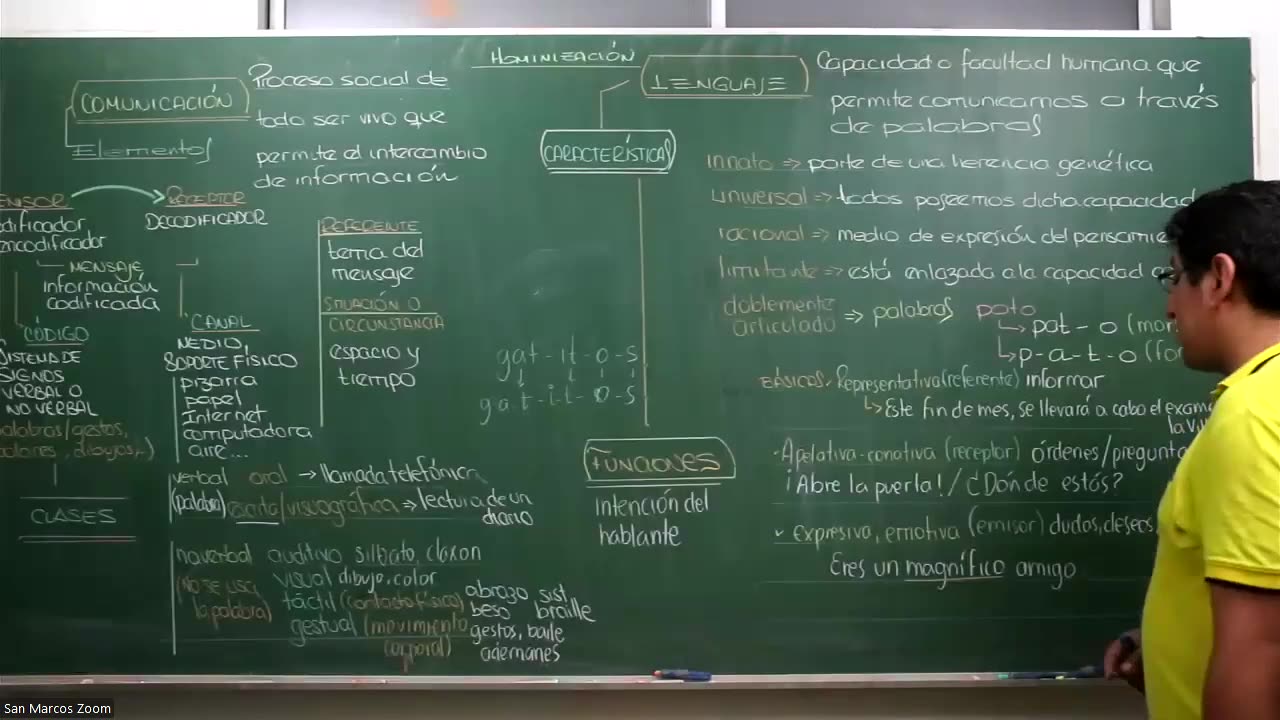 HOMINIZACIÓN
COMUNICACIÓN
Proceso social de
todo ser vivo que
permite el intercambio
de información
Elementos
EMISOR
RECEPTOR
DECODIFICADOR
MENSAJE
información
codificada
CÓDIGO
SISTEMA DE
SIGNOS
VERBAL O
NO VERBAL
palabras/gestos,
CANAL
MEDIO,
SOPORTE FÍSICO
pizarra
papel
Internet
computadora
aire...
REFERENTE
tema del
mensaje
SITUACIÓN O
CIRCUNSTANCIA
espacio y
tiempo
CLASES
verbal oral → llamada telefónica
(palabra) escrita/visuográfica ⇒ lectura de un
diario
no verbal auditivo silbato, claxon
(No se usa visual dibujo, color
la palabra) táctil (contacto físico) abrazo, sist
beso braille
gestual (movimiento gestos, baile
corporal) ademanes
LENGUAJE
Capacidad o facultad humana que
permite comunicarnos a través
de palabras
CARACTERÍSTICAS
innato ⇒ parte de una herencia genética
universal ⇒ todos poseemos dicha capacidad
racional ⇒ medio de expresión del
limitante ⇒ está enlazada a la capacidad
doblemente
articulado ⇒ palabras pato
pat - o
p-a-t-o
gat-it-o-s
g-a-t-i-t-o-s
FUNCIONES
intención del
hablante
BÁSICAS. Representativa (referente) informar
Este fin de mes, se llevará a cabo el
Apelativa-conativa (receptor) órdenes/
¡Abre la puerta! / ¿Dónde estás?
expresiva, emotiva (emisor) dudas, deseos,
Eres un magnífico amigo
San Marcos Zoom